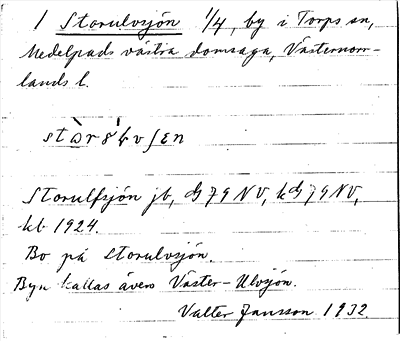 1 Storulvsjön 1/4, by i Torps sn,
Medelpads västra domsaga, Västernorr-
lands l.
Storulfsjön jb, dj 79 NV, kdj 79 NV,
kb 1924.
Bo på Storulvsjön.
Byn kallas även Väster-Ulvsjön.
Valter Jansson 1932